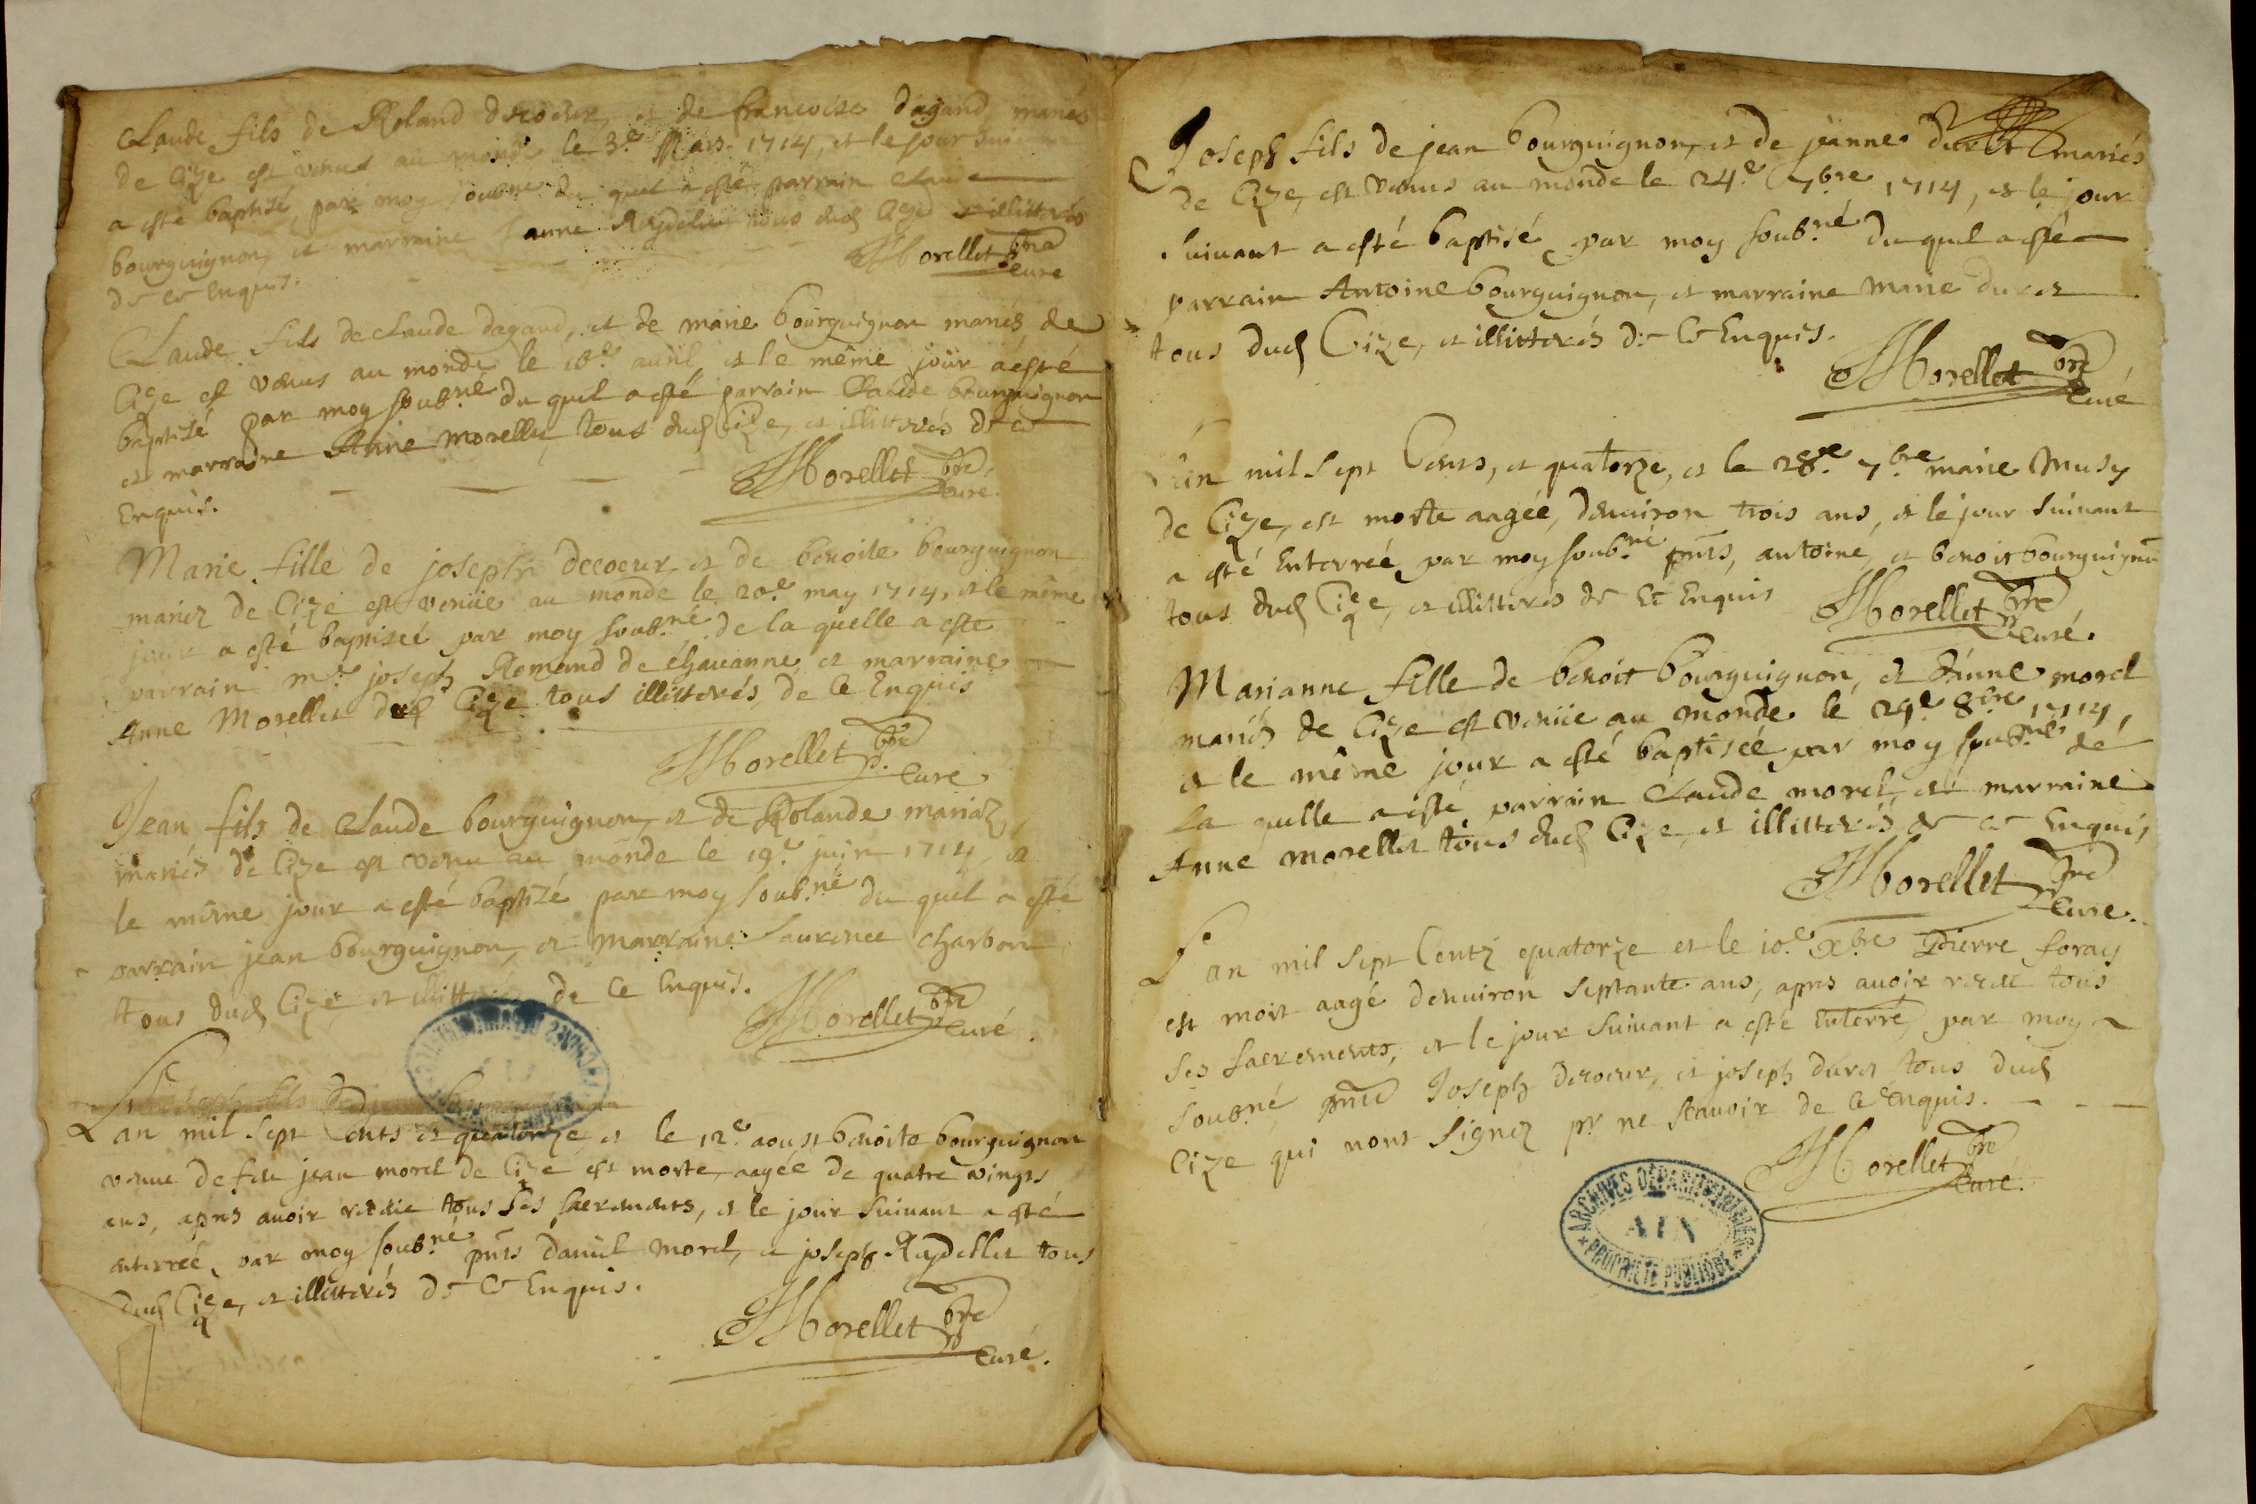 Claude fils de Roland decoeur, et de francoise dagand mariés
de Cize est venus au monde le 3.e Mars 1714, et le jour suivant
a esté baptisé, par moy soub.né du quel a esté parrain Claude
bourguignon, et marraine Jeanne Reydelet tous dud Cize illitterés
de ce Enquis.
Morellet pbre
Curé
Claude fils de Claude dagand, et de marie bourguignon mariés de
Cize est venus au monde le 18.e auril et le même jour a esté
baptisé par moy soub.né du quel a esté parrain Claude bourguignon
et marraine Anne Morellet, tous dud Cize, et illitterés de ce
Enquis.
Morellet pbre
Curé.
Marie fille de joseph decoeur et de benoite bourguignon
mariez de Cize est venüe au monde le 20.e may 1714, et le même
jour a esté baptiseé par moy soub.né de la quelle a esté
parrain m.r joseph Romand de Chauanne et marraine
Anne Morellet dud Cize tous illitterés, de ce Enquis
Morellet pbre
Curé
Jean fils de Claude bourguignon, et de Rolande mariez
mariés de Cize est venu au monde le 19.e juin 1714, et
le même jour a esté baptizé par moy soub.né du quel a esté
parrain jean bourguignon, et marraine Laurence Charbon
tous dud Cize et illitterés de ce Enquis.
Morellet pbre
Curé.
Lan mil sept Cents et quatorze, et le 12.e aoust benoite bourguignon
venue de feu jean morel de Cize est morte, aagée de quatre vingts
ans, apres auoir receu tous ses sacrements, et le jour suiuant a esté
enterreé, par moy soub.né pnts daniel morel, et joseph Reydellet tous
dud Cize, et illitterés de ce Enquis.
Morellet pbre
Curé.
Joseph fils de jean bourguignon, et de jeanne duret mariés
de Cize, est venus au monde le 24.e 7bre 1714, et le jour
suiuant a esté baptisé par moy soub.né du quel a esté
parrain Antoine bourguignon, et marraine marie duret
tous dud Cize, et illitterés de ce Enquis.
Morellet pbre
Curé
L'an mil sept Cents, et quatorze, et le 28.e 7.bre marie Musy
de Cize, est morte aagée, denuiron trois ans, et le jour suiuant
a esté Enterreé par moy soub.né pnts, antoine, et benoit bourguignon
tous dud Cize, et illitterés de Ce Enquis
Morellet pbre
Curé.
Marianne fille de benoit bourguignon, et d'Anne morel
mariés de Cize est venüe au monde le 29.e 8bre 1714,
et le même jour a esté baptiseé par moy soub.né de
la quelle a esté parrain Claude morel, et marraine
Anne morellet tous dud Cize, et illitterés de ce Enquis
Morellet pbre
Curé.
L'an mil sept Centz quatorze et le 10.e Xbre Pierre foray
est mort aagé denuiron septante ans, apres auoir receu tous
ses sacrements, et le jour suiuant a esté enterré par moy
soub.né pnts Joseph decoeur, et joseph duret tous dud
Cize qui nont signez pr ne scauoir de ce enquis.
Morellet pbre
Curé.
ARCHIVES DÉPARTEMENTALES
AIN
PROPRIÉTÉ PUBLIQUE